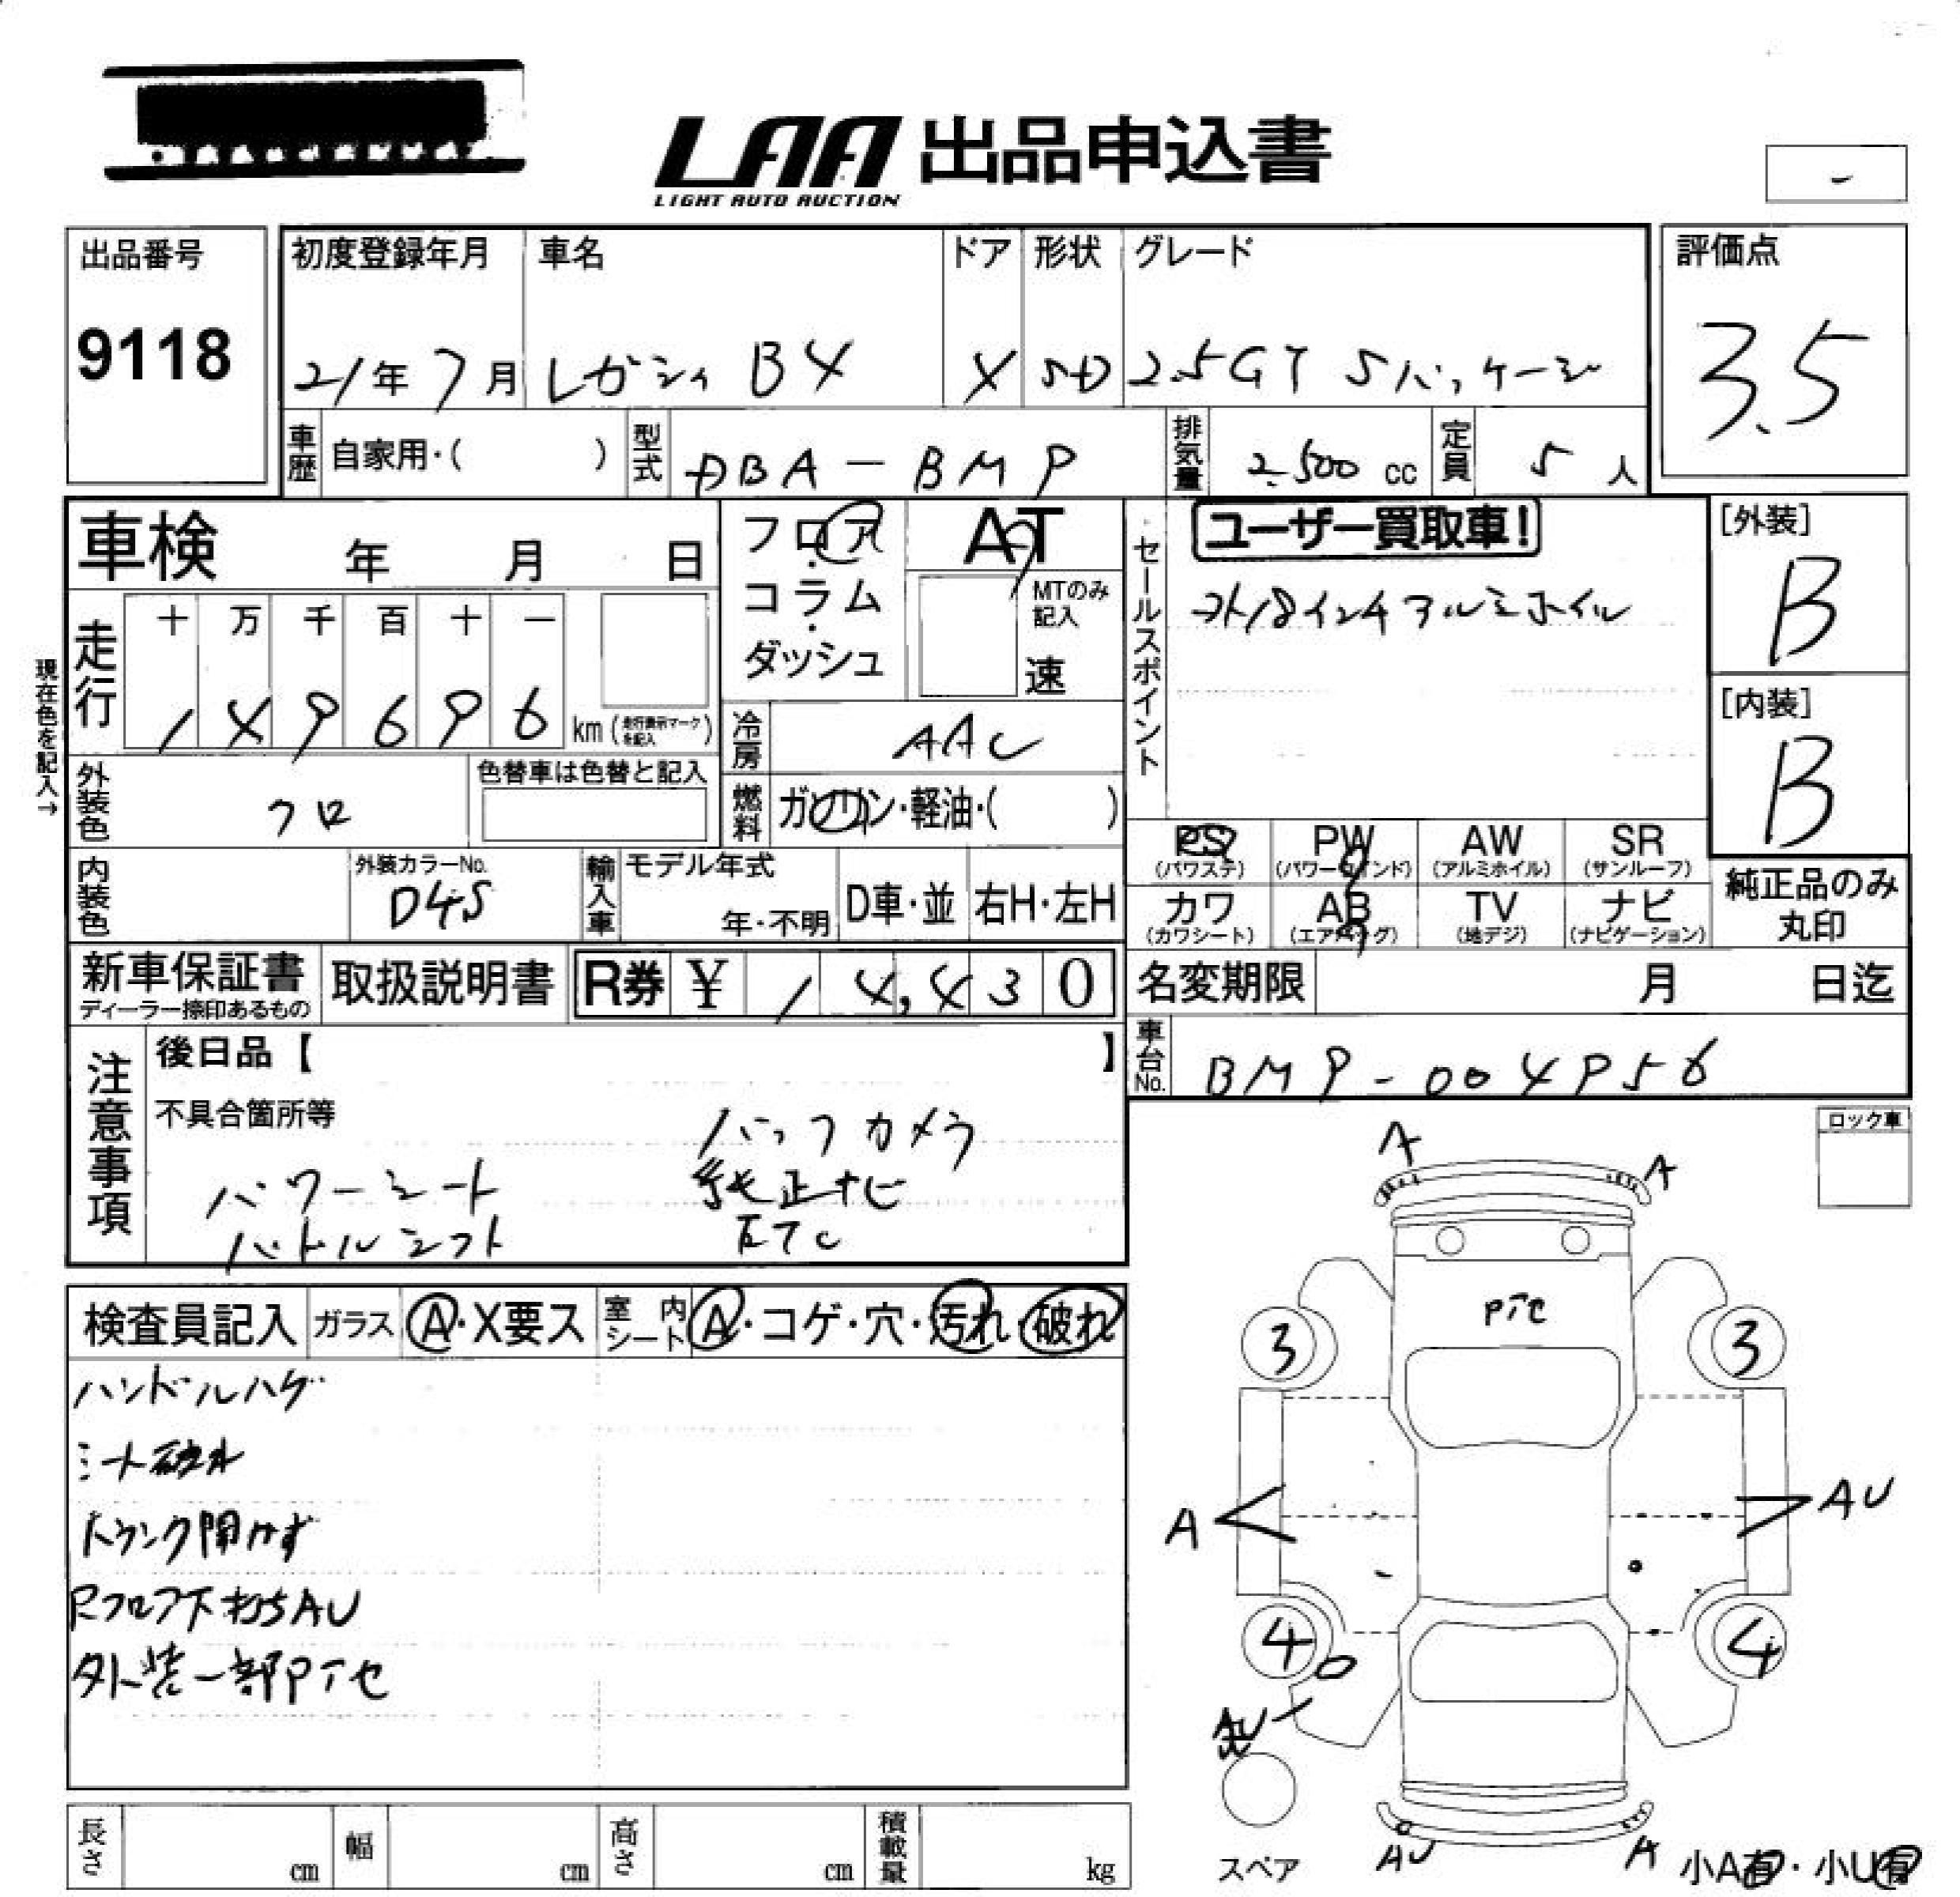 LAA 出品申込書
LIGHT AUTO AUCTION
-
出品番号
9118
初度登録年月
21年7月
車名
レガシィ B4
ドア
4
形状
SD
グレード
2.5GT Sパッケージ
評価点
3.5
車歴 自家用・( )
型式 DBA-BM9
排気量 2500 cc
定員 5 人
車検 年 月 日
フロア・コラム・ダッシュ
AT
MTのみ記入
速
セールスポイント
ユーザー買取車!
社外18インチアルミホイル
[外装]
B
[内装]
B
現在色を記入→
走行 十 万 千 百 十 一
149696 km (走行表示マークを記入)
冷房 AAC
燃料 ガソリン・軽油・( )
外装色 クロ
色替車は色替と記入
内装色
外装カラーNo.
D4S
輸入車 モデル年式
年・不明
D車・並
右H・左H
PS (パワステ)
PW (パワーウインド)
AW (アルミホイル)
SR (サンルーフ)
カワ (カワシート)
AB (エアバッグ)
TV (地デジ)
ナビ (ナビゲーション)
純正品のみ
丸印
新車保証書
ディーラー捺印あるもの
取扱説明書
R券 ¥ 14,430
名変期限 月 日迄
車台No. BM9-004956
注意事項
後日品【 】
不具合箇所等
バックカメラ
パワーシート 純正ナビ
パドルシフト ETC
ロック車
検査員記入 ガラス A・X要ス 室内シート A・コゲ・穴・汚れ・破れ
ハンドルハゲ
シート破れ
トランク開かず
Rフロア下打ちAU
外装一部Pヤセ
A A
3 3
A AU
4 4
AU
スペア
AU A
小A有・小U有
長さ cm
幅 cm
高さ cm
積載量 kg